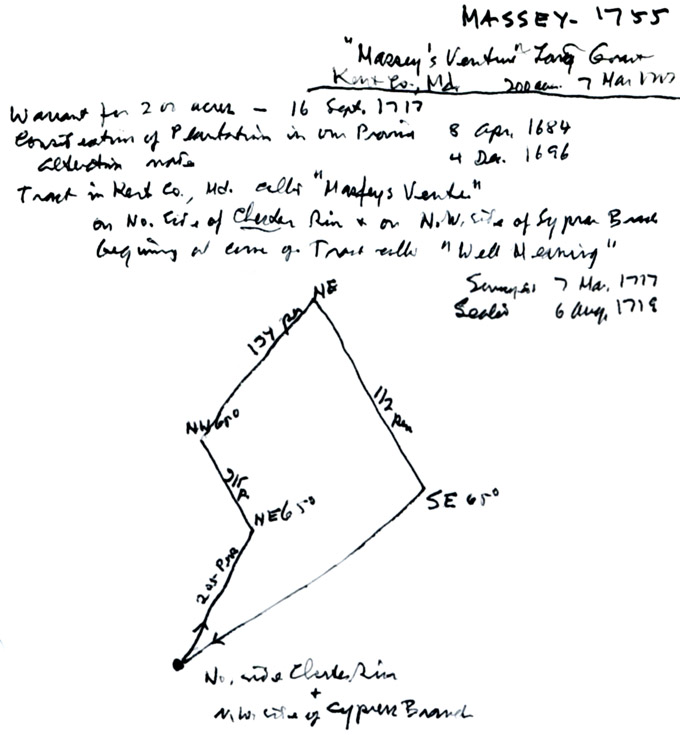 MASSEY - 1755
"Massey's Venture" Land Grant
Kent Co., Md. 200 acres 7 Mar 1717
Warrant for 200 acres - 16 Sept. 1717
of Plantation in our 8 Apr. 1684
note 4 Dec. 1696
Tract in Kent Co., Md. calls "Masseys Venter"
on No. Side of Chester River + on N.W. side of Cypress Branch
begining at corner of Tract calls "Well Meaning"
Surveyed 7 Mar. 1717
Sealed 6 Aug. 1718
NE
134 prs
NW 60°
112 prs
215 P
NE 65°
SE 65°
205 Prs
No. side Chester River
+
N.W. side of Cypress Branch